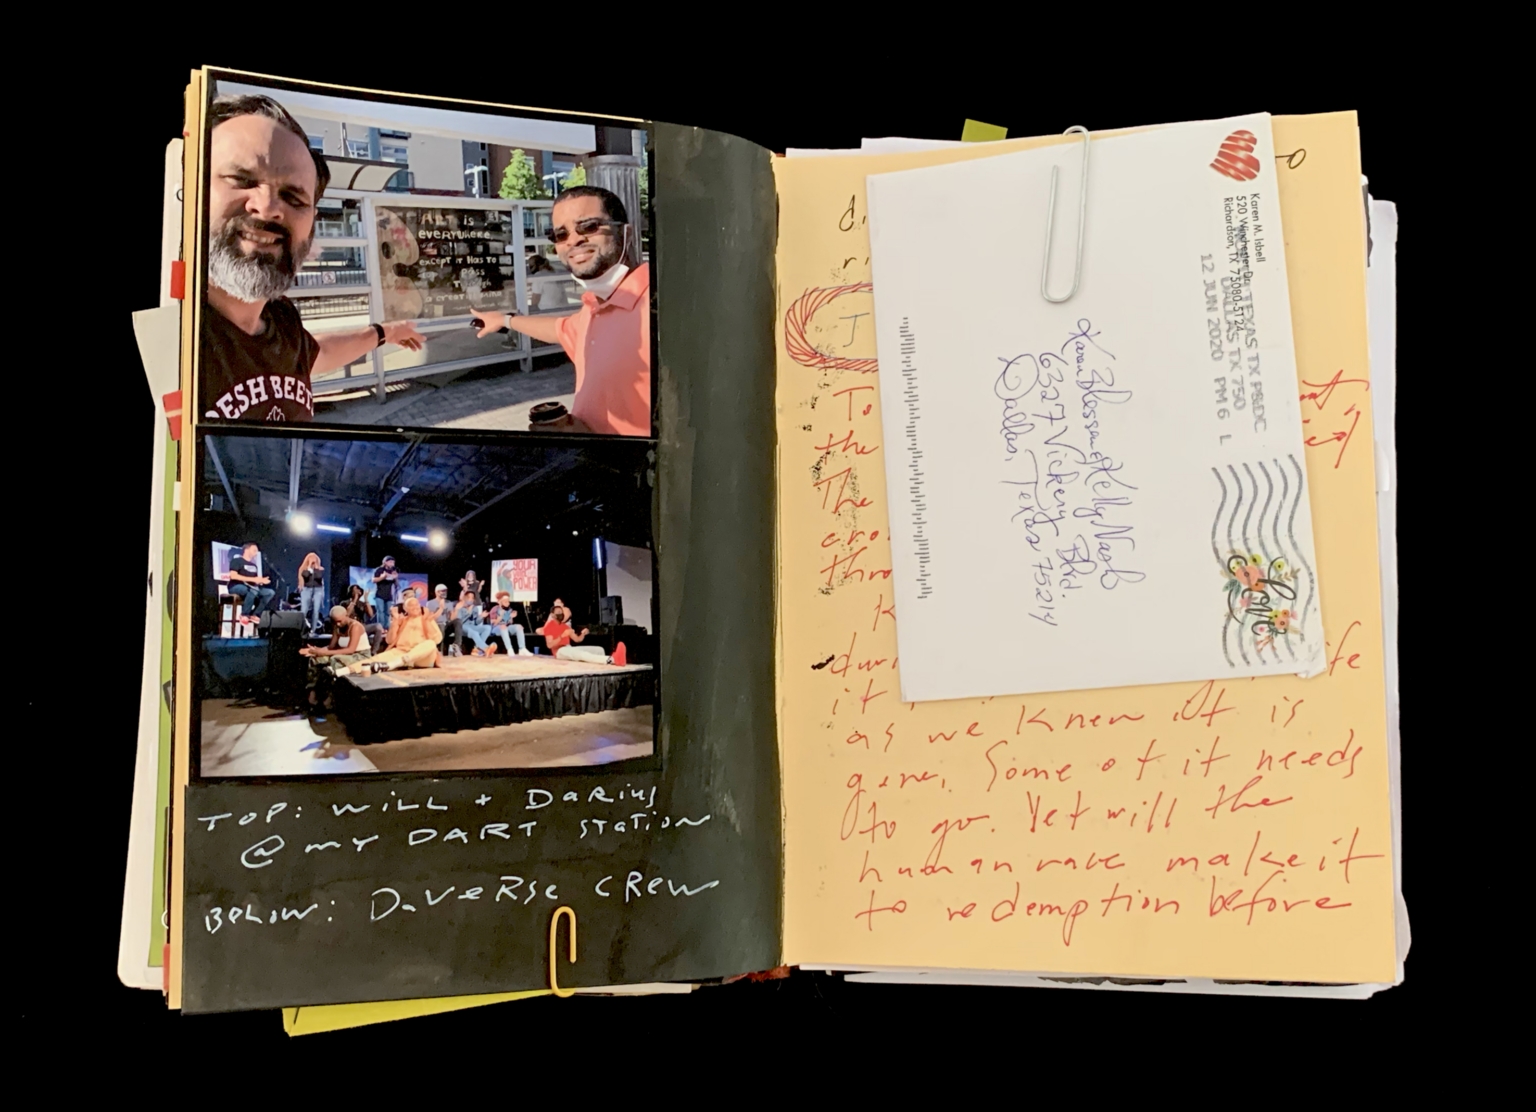 ART is
everywhere
except it Has to
pass
a creative mind
ESH BEE
POWER
TOP: Will + Darius
@ my DART station
Below: DaVerse Crew
Karen M. Isbell
520 Winchester Dr.
Richardson, TX 75080-5124
TEXAS TX P&DC
DALLAS TX 750
12 JUN 2020 PM 6 L
Love
Karen Blessing Kelly Nash
6327 Vickery Blvd.
Dallas, Texas 75214
di
ri
J
To
the
The
cro
thro
K
duri
ife
it
as we knew it is
gone. Some of it needs
to go. Yet will the
human race make it
to redemption before